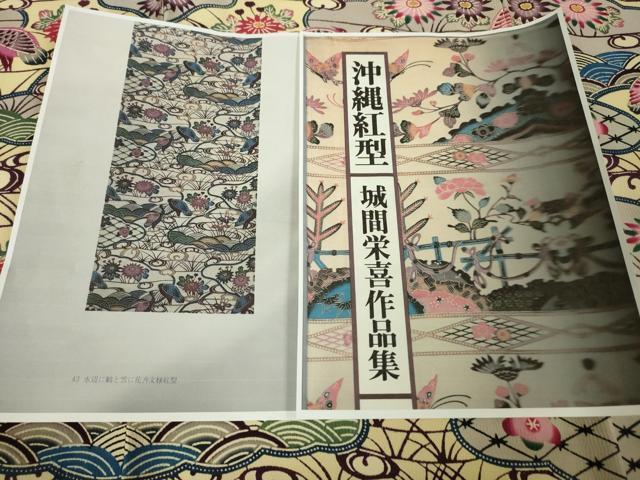 沖縄紅型
城間栄喜作品集
43 水辺に鶴と雲に花卉文様紅型